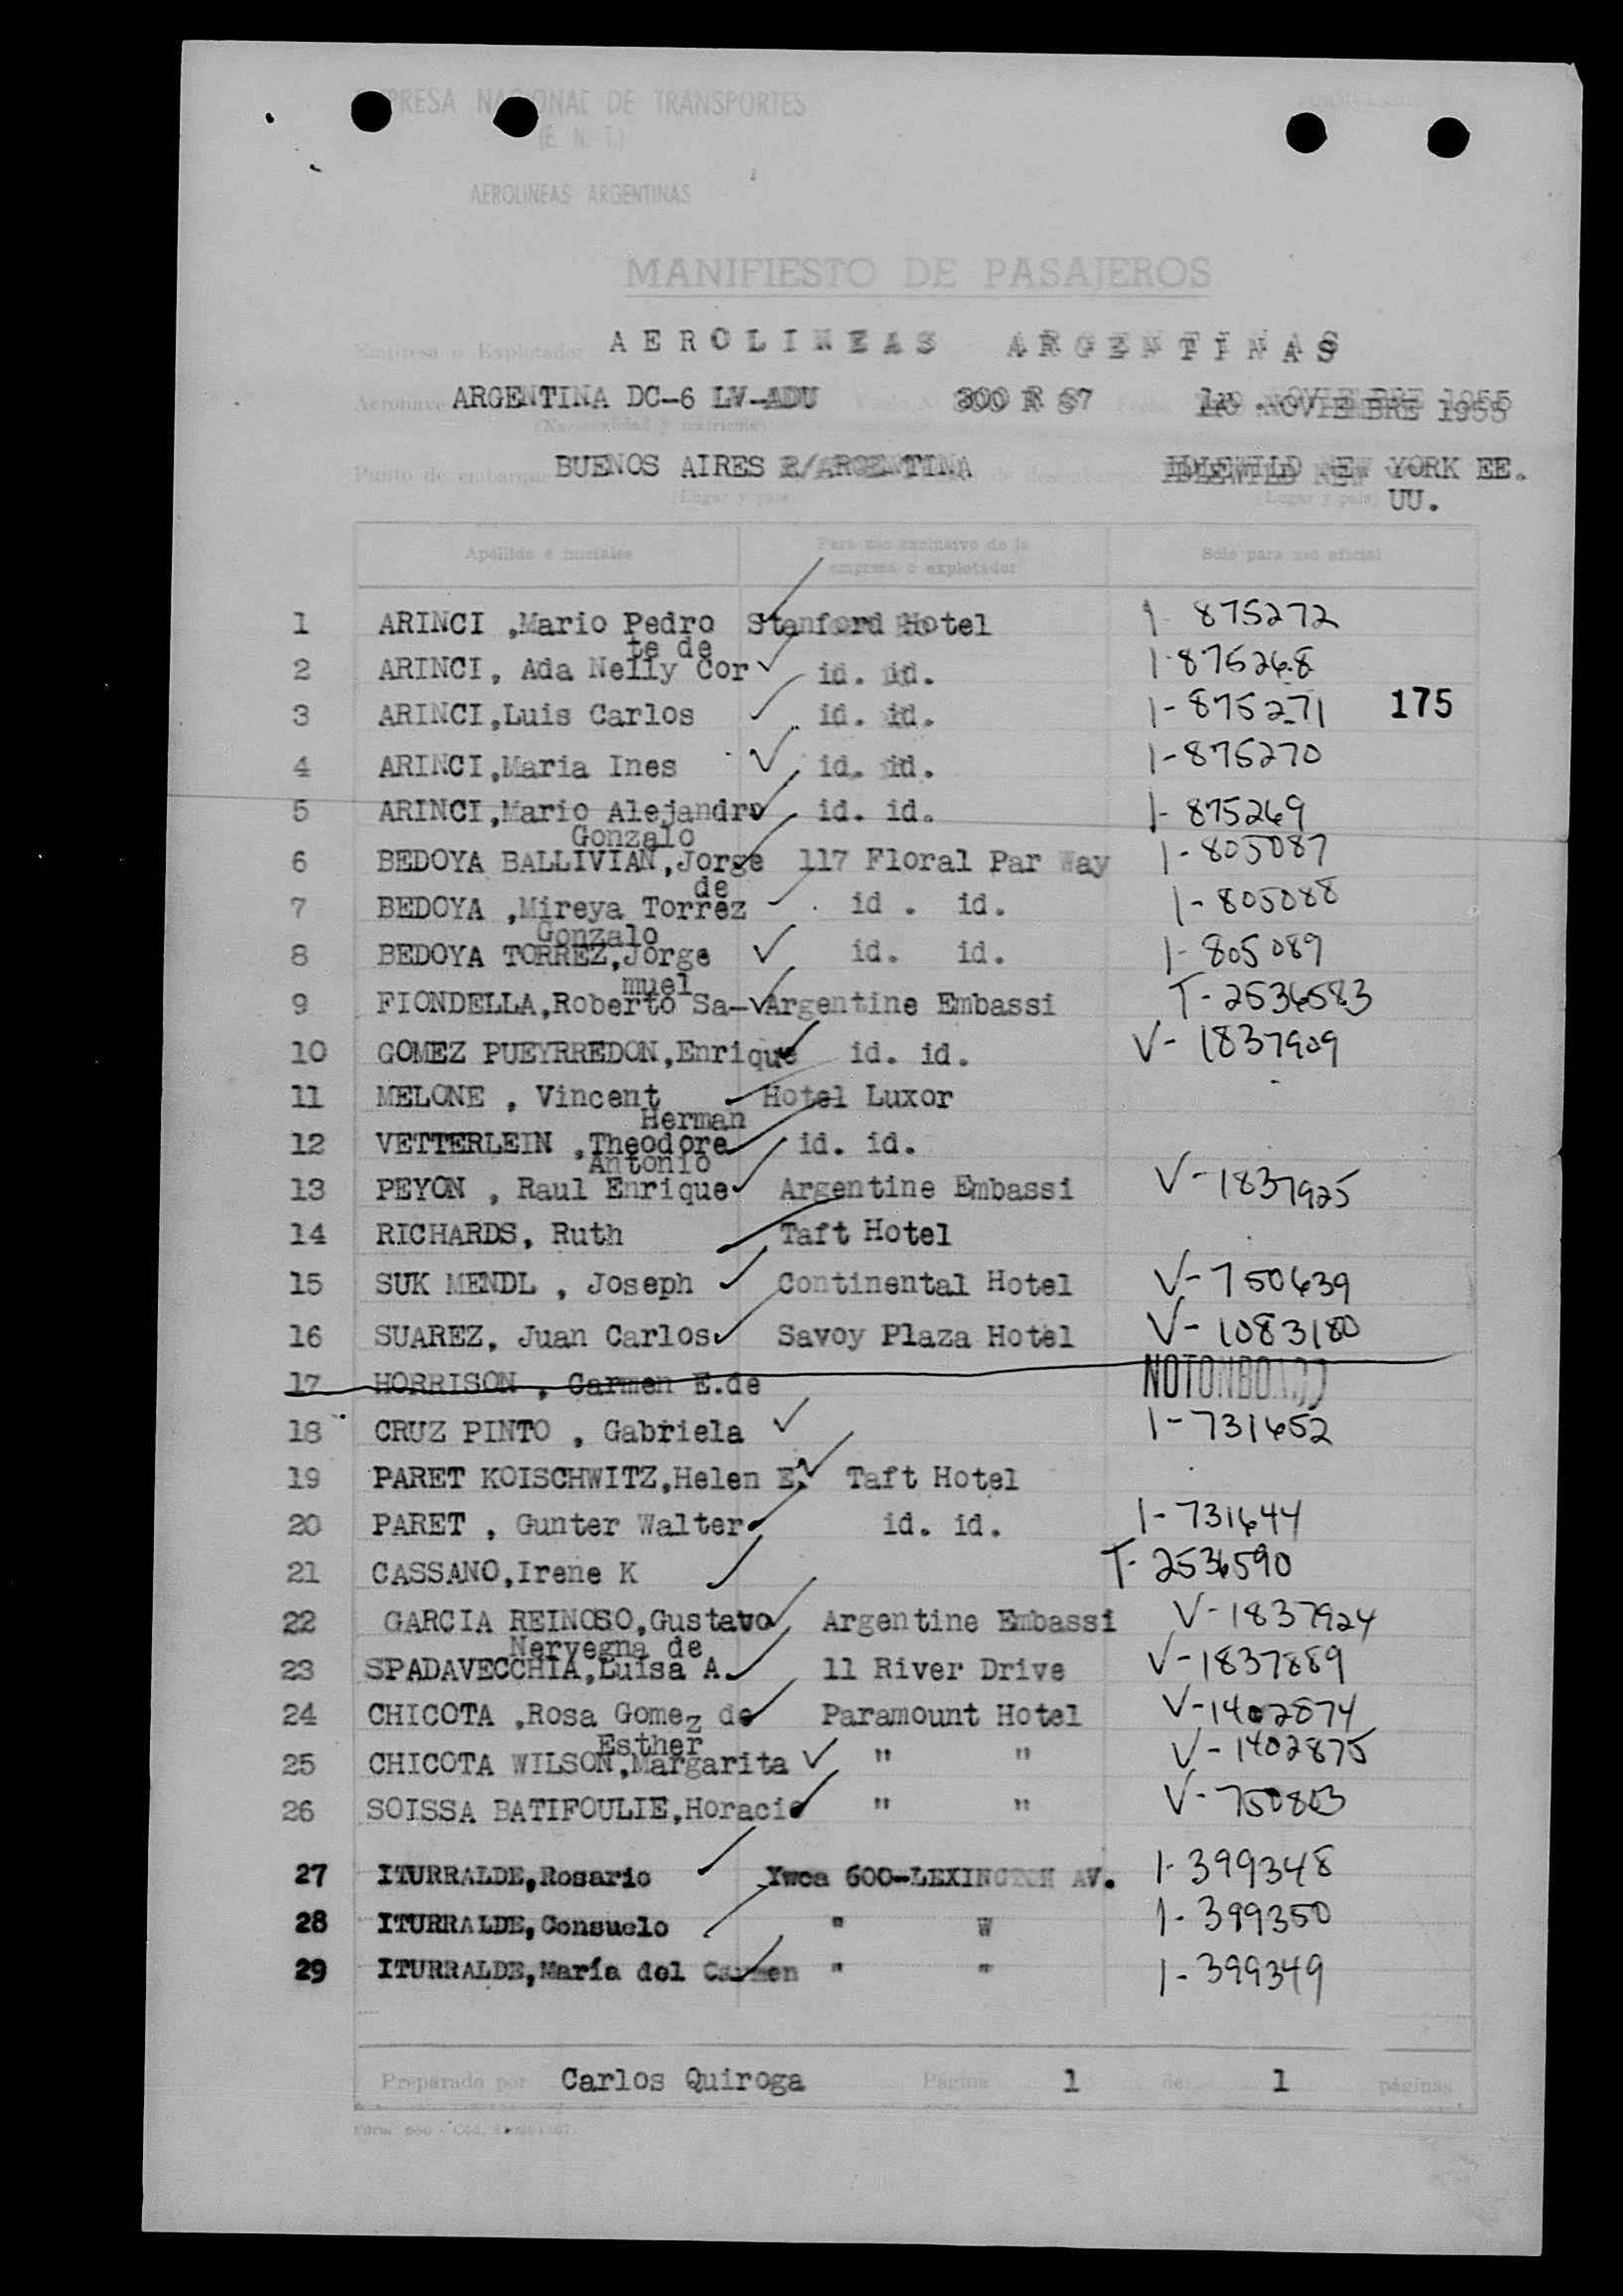 EMPRESA NACIONAL DE TRANSPORTES
(E. N. T.)
AEROLINEAS ARGENTINAS
MANIFIESTO DE PASAJEROS
Empresa o Explotador AEROLINEAS ARGENTINAS
Aeronave ARGENTINA DC-6 LV-ADU Vuelo N 300 R 87 Fecha NOVIEMBRE 1955
(Nacionalidad y matrícula)
Punto de embarque BUENOS AIRES R/ARGENTINA de desembarque IDLEWILD NEW YORK EE.
(Lugar y país) (Lugar y país) UU.
Apellido e iniciales Para uso exclusivo de la empresa o explotador Sólo para uso oficial
1 ARINCI ,Mario Pedro Stanford Hotel 1- 875272
te de
2 ARINCI, Ada Nelly Cor id. id. 1-875268
3 ARINCI,Luis Carlos id. id. 1-875271 175
4 ARINCI,Maria Ines id. id. 1-875270
5 ARINCI,Mario Alejandro id. id. 1-875269
Gonzalo
6 BEDOYA BALLIVIAN,Jorge 117 Floral Par Way 1-805087
de
7 BEDOYA ,Mireya Torrez id . id. 1-805088
Gonzalo
8 BEDOYA TORREZ,Jorge id. id. 1-805089
muel
9 FIONDELLA,Roberto Sa- Argentine Embassi T-2536583
10 GOMEZ PUEYRREDON,Enrique id. id. V-1837909
11 MELONE , Vincent Hotel Luxor
Herman
12 VETTERLEIN ,Theodore id. id.
Antonio
13 PEYON , Raul Enrique Argentine Embassi V-1837925
14 RICHARDS, Ruth Taft Hotel
15 SUK MENDL , Joseph Continental Hotel V-750639
16 SUAREZ, Juan Carlos Savoy Plaza Hotel V-1083180
17 HORRISON , Carmen E.de NOTONBOARD
18 CRUZ PINTO , Gabriela 1-731652
19 PARET KOISCHWITZ,Helen E. Taft Hotel
20 PARET , Gunter Walter id. id. 1-731644
21 CASSANO,Irene K T-2536590
22 GARCIA REINOSO,Gustavo Argentine Embassi V-1837924
Nervegna de
23 SPADAVECCHIA,Luisa A. 11 River Drive V-1837889
24 CHICOTA ,Rosa Gomez de Paramount Hotel V-1402874
Esther
25 CHICOTA WILSON,Margarita " " V-1402875
26 SOISSA BATIFOULIE,Horacio " " V-750803
27 ITURRALDE,Rosario Ywca 600-LEXINGTON AV. 1-399348
28 ITURRALDE,Consuelo " W 1-399350
29 ITURRALDE,María del Carmen " " 1-399349
Preparado por Carlos Quiroga Página 1 de 1 páginas